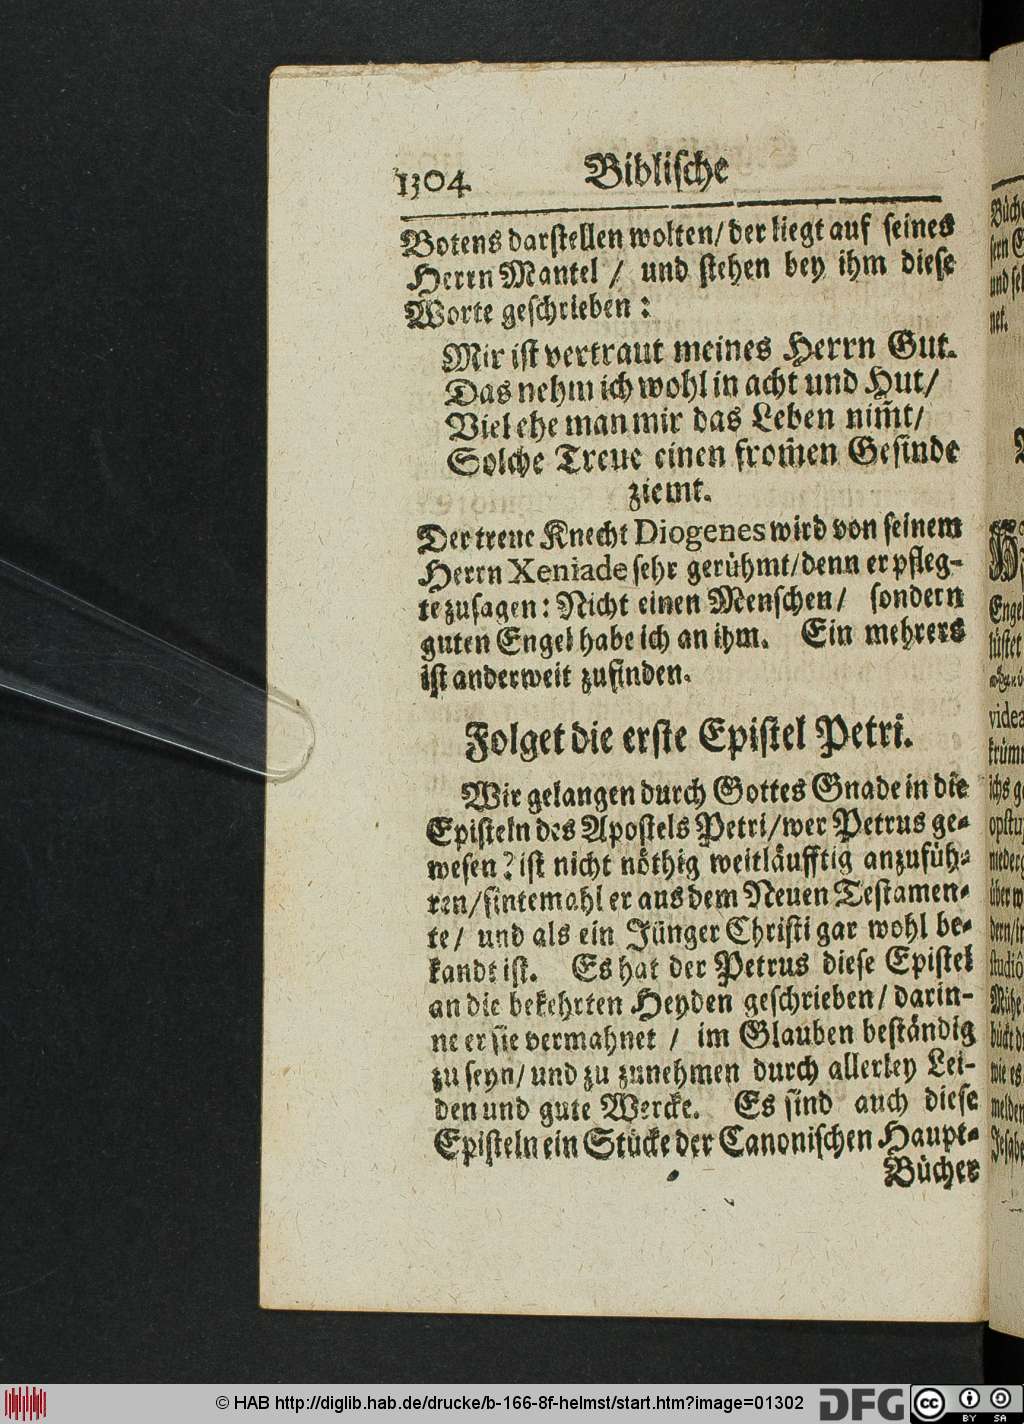 1304 Biblische
Botens darstellen wolten/ der liegt auf seines
Herrn Mantel / und stehen bey ihm diese
Worte geschrieben:
Mir ist vertraut meines Herrn Gut.
Das nehm ich wohl in acht und Hut/
Viel ehe man mir das Leben nim̃t/
Solche Treue einen from̃en Gesinde
ziemt.
Der treue Knecht Diogenes wird von seinem
Herrn Xeniade sehr gerühmt/ denn er pfleg-
te zusagen: Nicht einen Menschen/ sondern
guten Engel habe ich an ihm. Ein mehrers
ist anderweit zufinden.
Folget die erste Epistel Petri.
Wir gelangen durch Gottes Gnade in die
Episteln des Apostels Petri/ wer Petrus ge-
wesen? ist nicht nöthig weitläufftig anzufüh-
ren/ sintemahl er aus dem Neuen Testamen-
te/ und als ein Jünger Christi gar wohl be-
kandt ist. Es hat der Petrus diese Epistel
an die bekehrten Heyden geschrieben/ darin-
ne er sie vermahnet / im Glauben beständig
zu seyn/ und zu zunehmen durch allerley Lei-
den und gute Wercke. Es sind auch diese
Episteln ein Stücke der Canonischen Haupt-
Bücher
© HAB http://diglib.hab.de/drucke/b-166-8f-helmst/start.htm?image=01302 DFG cc BY SA